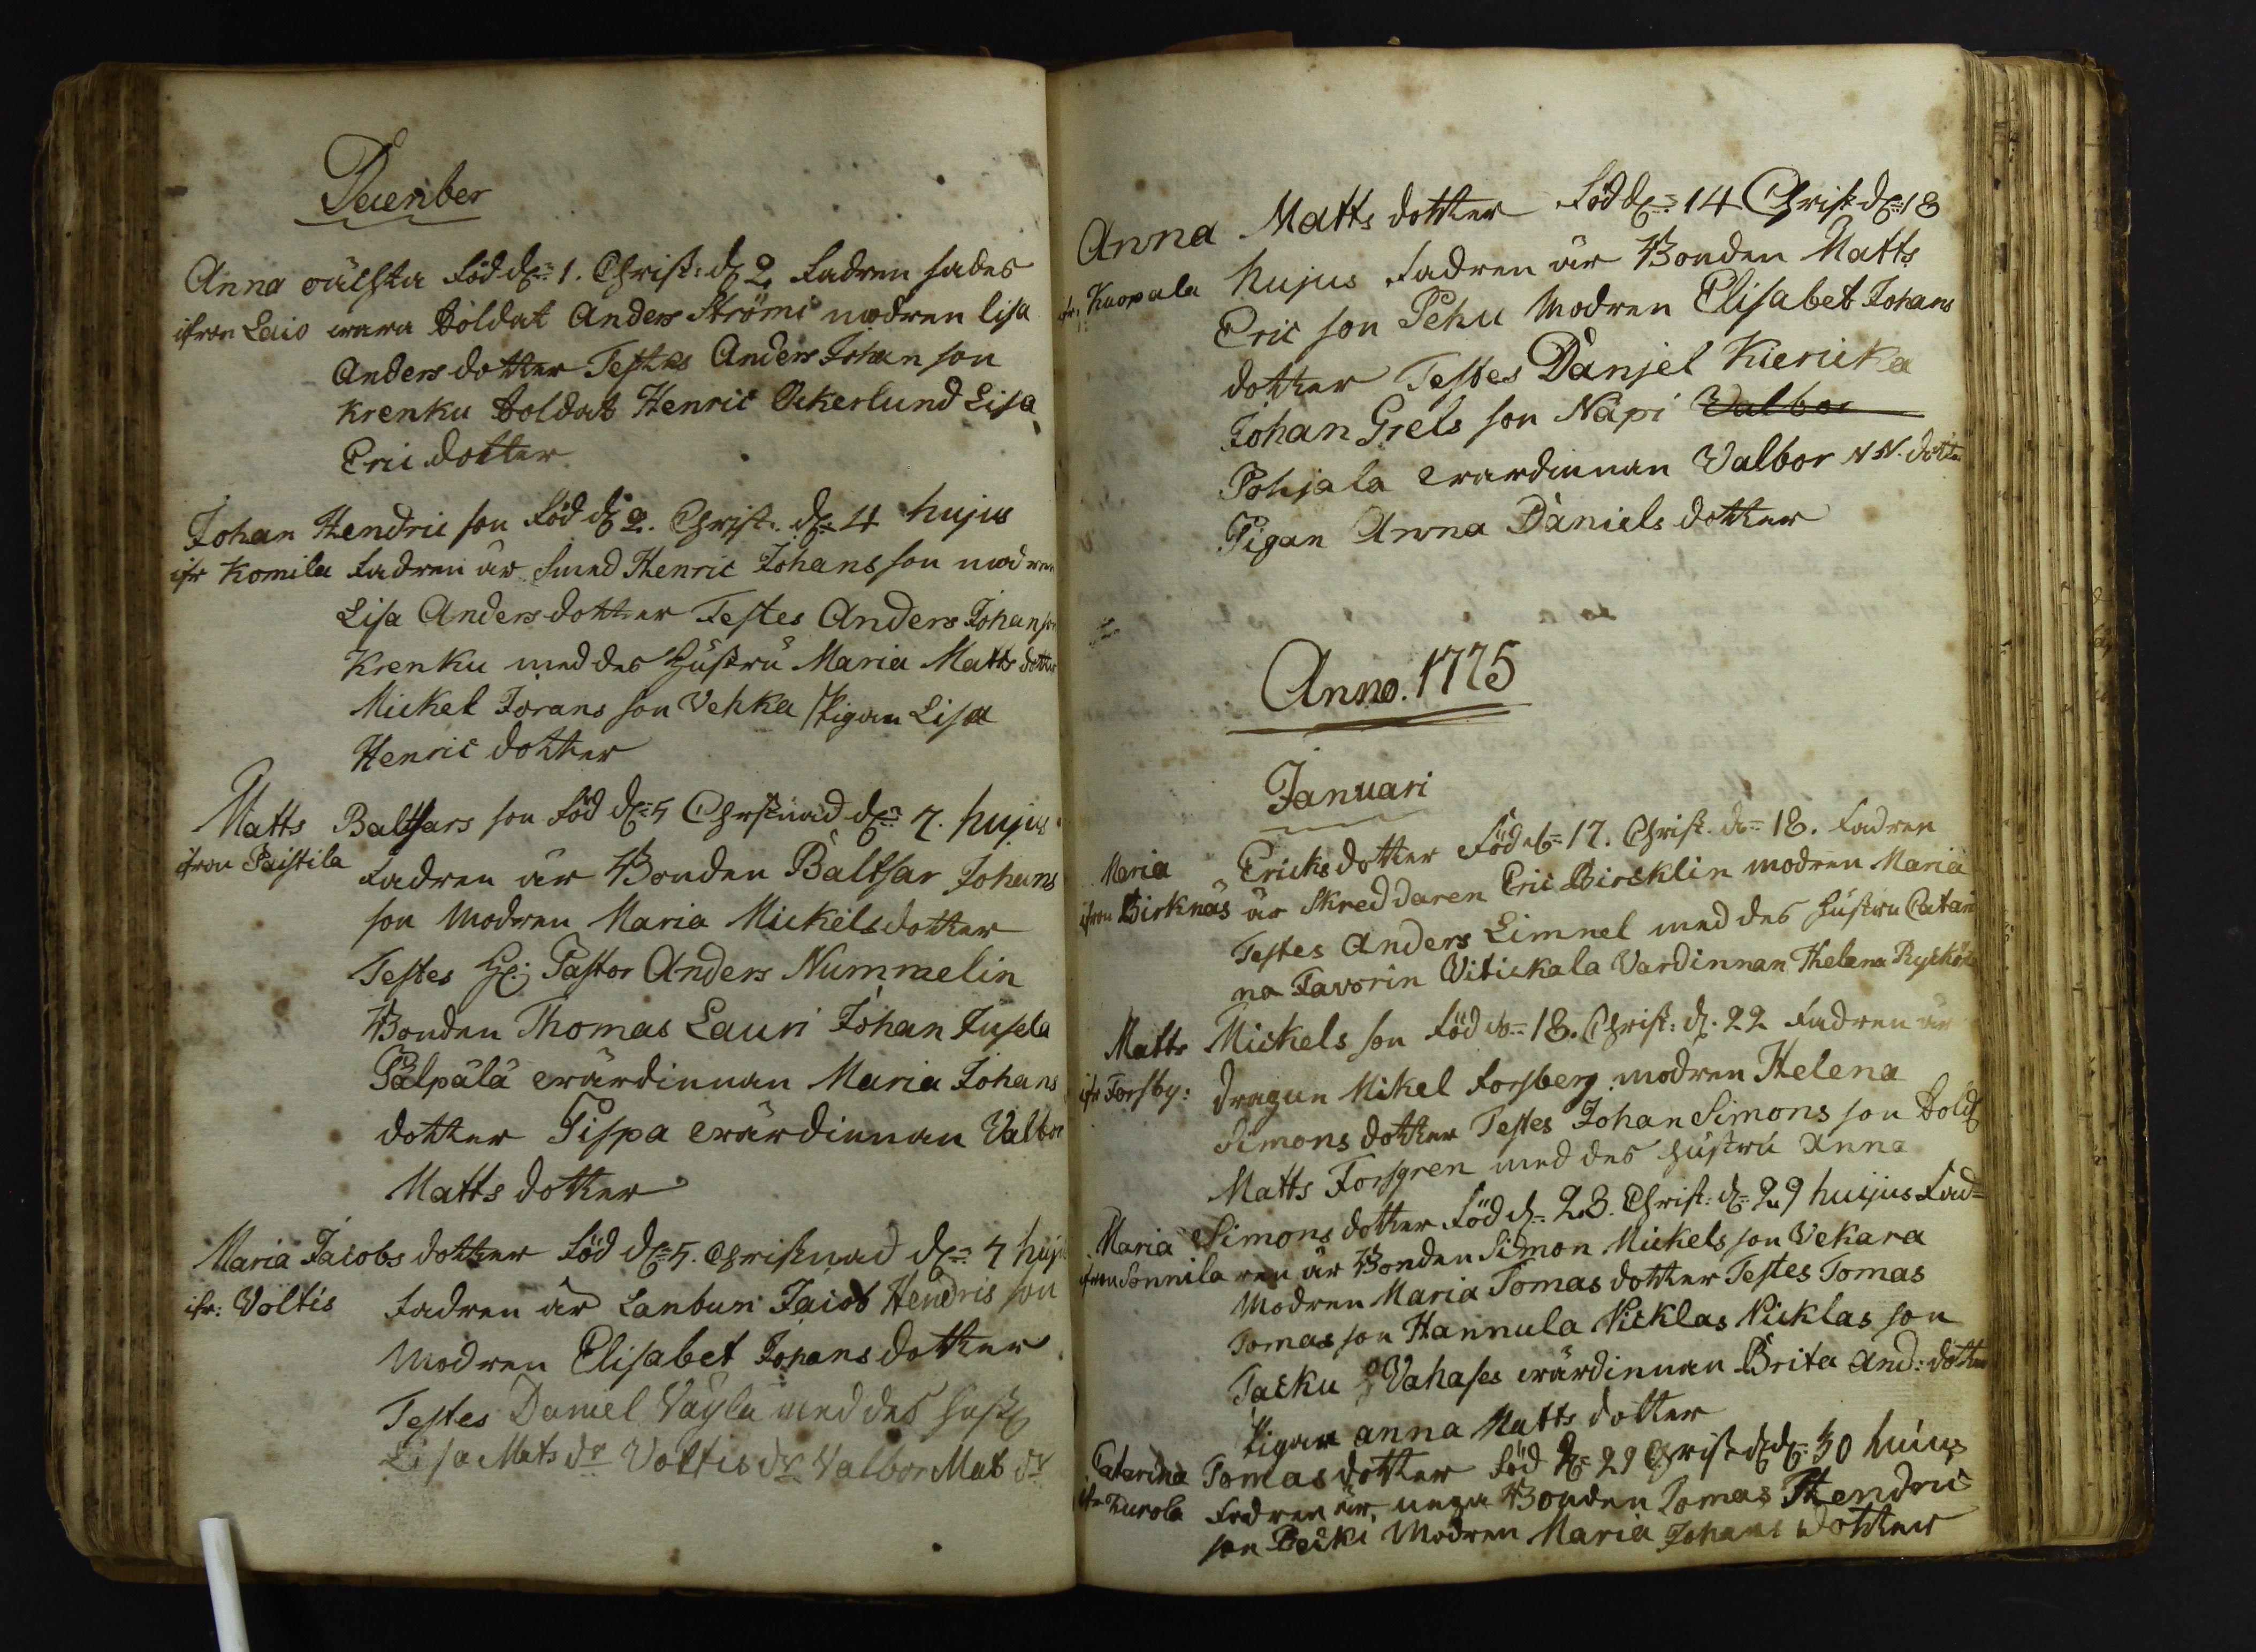 December
Anna oächta född d: 1. Christ: d 2. fadren sades
ifron Laio wara Soldat Anders Strömi modren lisa
Anders dotter Testes Anders Johan son
Krenku Soldat Henric Ockerlund Lisa
Eric dotter
Johan Hendric son föd d 2. Christ. d: 4 hujus
ifr Komila fadren är Smed Henric Johans son modren
Lisa Anders dotter Testes Anders Johan son
Krenku med des hustru Maria Matts dotter
Mickel Jörans son Vehka Pigan Lisa
Henric dotter
Matts Baltsars son föd d: 5 Christnad d: 7. hujus
ifron Paistila fadren är Bonden Baltsar Johans
son Modren Maria Mickels dotter
Testes H: Pastor Anders Nummelin
Bonden Thomas Lauri Johan Jusela
Pälpälä wärdinnan Maria Johans
dotter Pispa wärdinnan Valbor
Matts dotter
Maria Jacobs dotter föd d: 5. Christnad d: 7 huj
ifr: Voltis fadren är Lanbun Jacob Hendric son
Modren Elisabet Johans dotter
Testes Daniel Väyla med des hust
Lisa Mats dr Voltis dr Valbor Mat dr
Anna Matts dotter född d: 14 Christ d: 18
ifr: Kuopala hujus fadren är Bonden Matts
Eric son Pehu Modren Elisabet Johans
dotter Testes Danjel Kiericka
Johan Grels son Näpi Valbor
Pohjala wärdinnan Valbor NN. dotter
Pigan Anna Daniels dotter
Anno. 1775
Januari
Maria Ericks dotter född d: 17. Christ. d: 18. fadren
ifron Birknäs är Skreddaren Eric Bircklin modren Maria
Testes Anders Limnel med des hustru Catari
na Favorin Vitickala Vardinnan Helena
Matts Mickels son föd d: 18. Christ: d. 22 fadren är
ifr Forsby: dragun Mikel Forsberg modren Helena
Simons dotter Testes Johan Simons son Sold
Matts Forsgren med des hustru Anna
Maria Simons dotter föd d: 23. Christ: d: 29 huijus Fad=
ifron Sonnila ren är Bonden Simon Mickels son Vekara
Modren Maria Tomas dotter Testes Tomas
Tomas son Hannula Nicklas Nicklas son
Jacku Vahases wärdinnan Brita And: dotter
Pigan anna Matts dotter
Catarina Tomas dotter föd d: 29 Christ d: 30 huius
ifr Kurola Fadren är unga Bonden Tomas Hendric
son Pecki Modren Maria Johans dotter